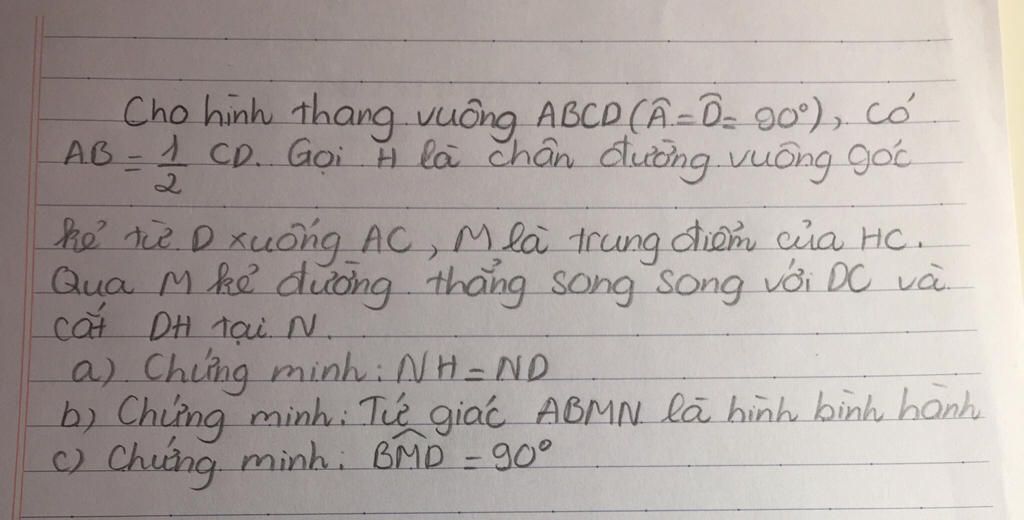 Cho hình thang vuông ABCD (Â = D̂ = 90°), có
AB = 1/2 CD. Gọi H là chân đường vuông góc
kẻ từ D xuống AC, M là trung điểm của HC.
Qua M kẻ đường thẳng song song với DC và
cắt DH tại N.
a) Chứng minh: NH = ND
b) Chứng minh: Tứ giác ABMN là hình bình hành
c) Chứng minh: BM̂D = 90°